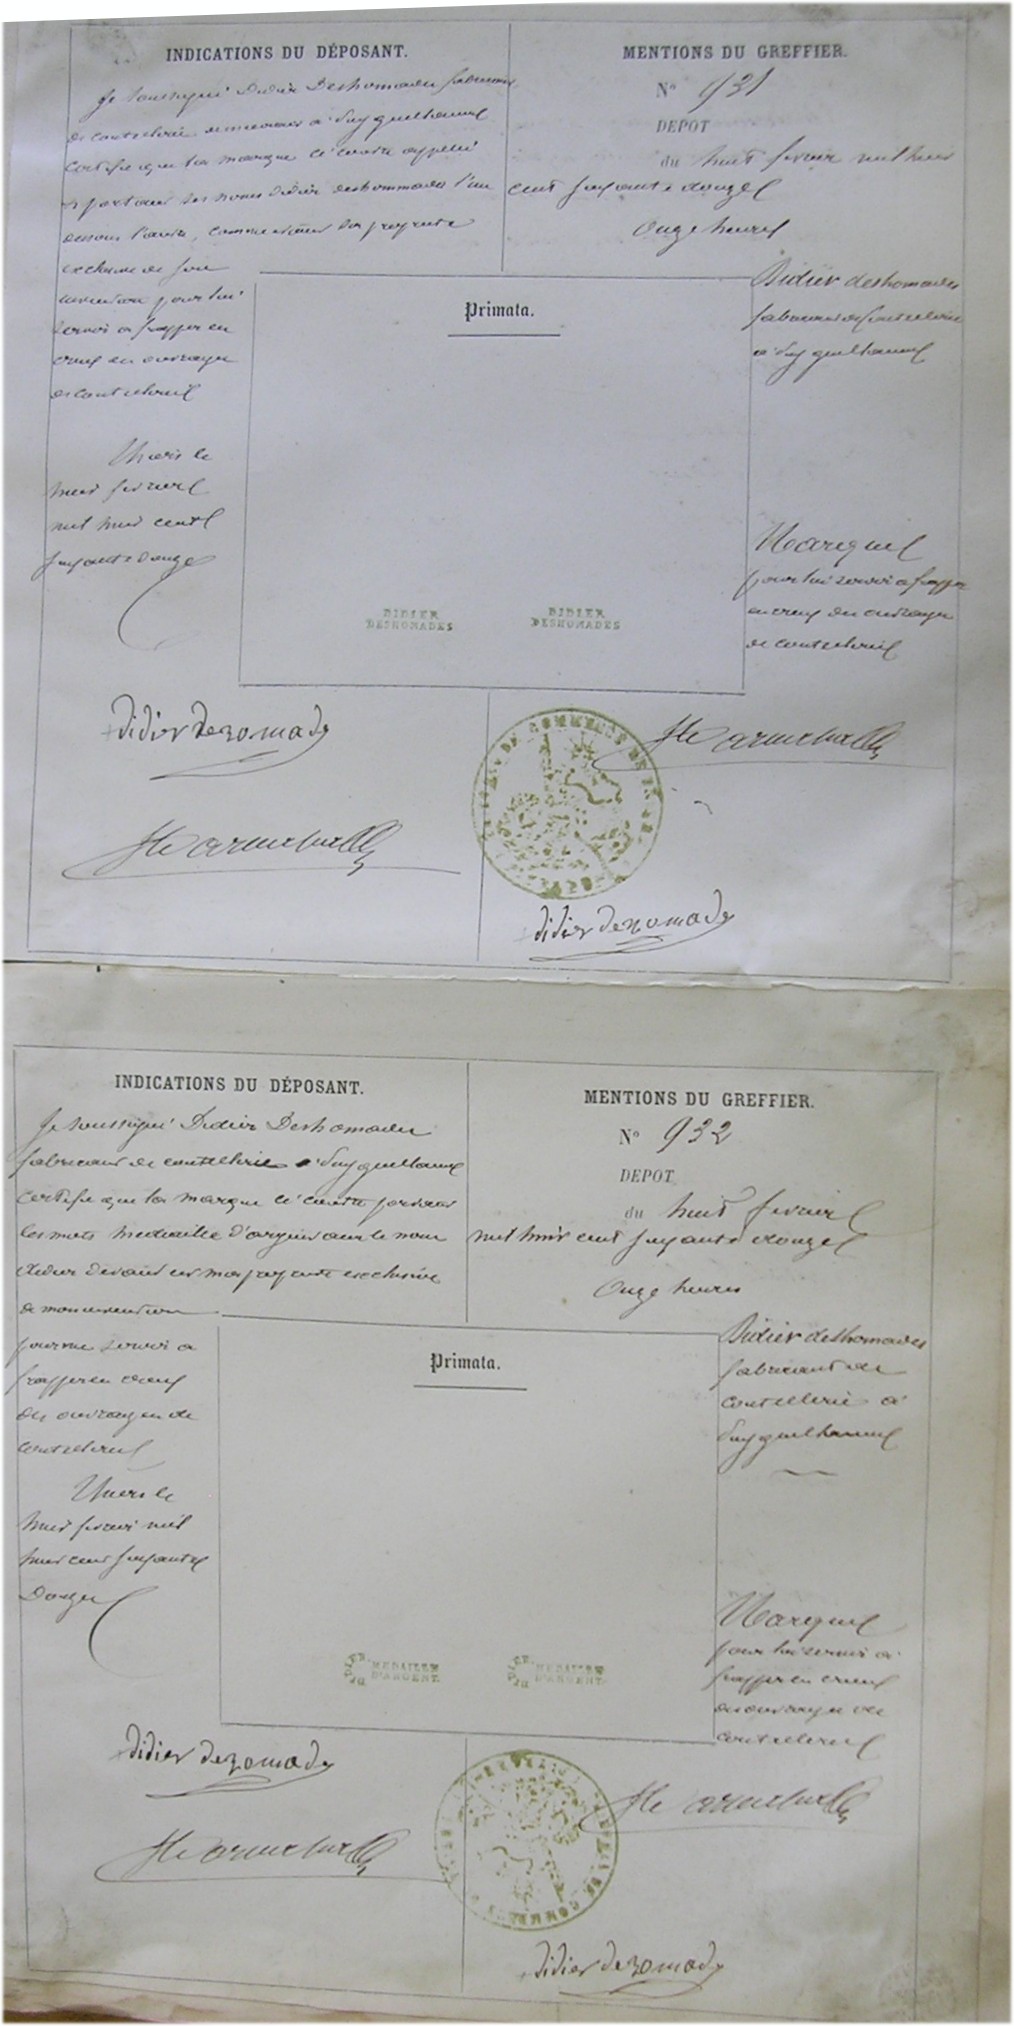 INDICATIONS DU DÉPOSANT.
Je soussigné Didier Deshomades fabricant
de coutellerie demeurant à Puy guillaume
certifie que la marque ci contre appelée
et portant ses noms Didier deshommades l'un
dessous l'autre, comme étant la propriété
exclusive de son
invention pour lui
servir à frapper en
creux des ouvrages
de coutellerie
Thiers le
huit février
mil huit cent
soixante douze
MENTIONS DU GREFFIER.
N° 931
DEPOT
du huit février mil huit
cent soixante douze
Onze heures
Primata.
Didier deshomades
fabricant de coutellerie
à Puy guillaume
Marque
pour lui servir à frapper
en creux des ouvrages
de coutellerie
DIDIER
DESHOMADES
DIDIER
DESHOMADES
didier dezomade
didier dezomade
INDICATIONS DU DÉPOSANT.
Je soussigné Didier Deshomades
fabricant de coutellerie à Puy guillaume
certifie que la marque ci contre portant
les mots médaille d'argent avec le nom
didier devant est ma propriété exclusive
de mon invention
pour me servir à
frapper en creux
des ouvrages de
coutellerie
Thiers le
huit février mil
huit cent soixante
Douze
MENTIONS DU GREFFIER.
N° 932
DEPOT
du huit février
mil huit cent soixante douze
Onze heures
Primata.
Didier deshomades
fabricant de
coutellerie à
Puy guillaume
Marque
pour lui servir à
frapper en creux
des ouvrages de
coutellerie
DIDIER MEDAILLE
D'ARGENT
DIDIER MEDAILLE
D'ARGENT
didier dezomade
didier dezomade